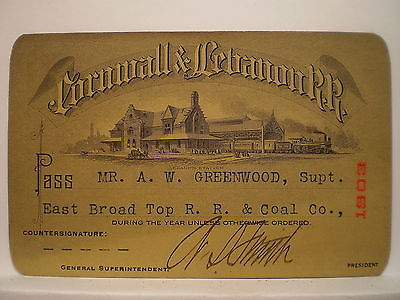 Cornwall & Lebanon R.R.
LEBANON STATION
Pass MR. A. W. GREENWOOD, Supt.
East Broad Top R. R. & Coal Co.,
1903
DURING THE YEAR UNLESS OTHERWISE ORDERED.
COUNTERSIGNATURE:
— — — — —
GENERAL SUPERINTENDENT.
PRESIDENT